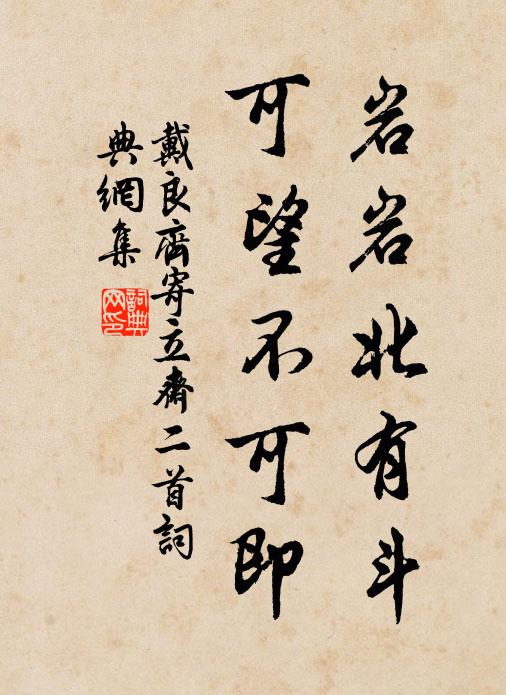 岩岩北有斗
可望不可即
戴良齊寄立齋二首詞
典網集
詞典网印